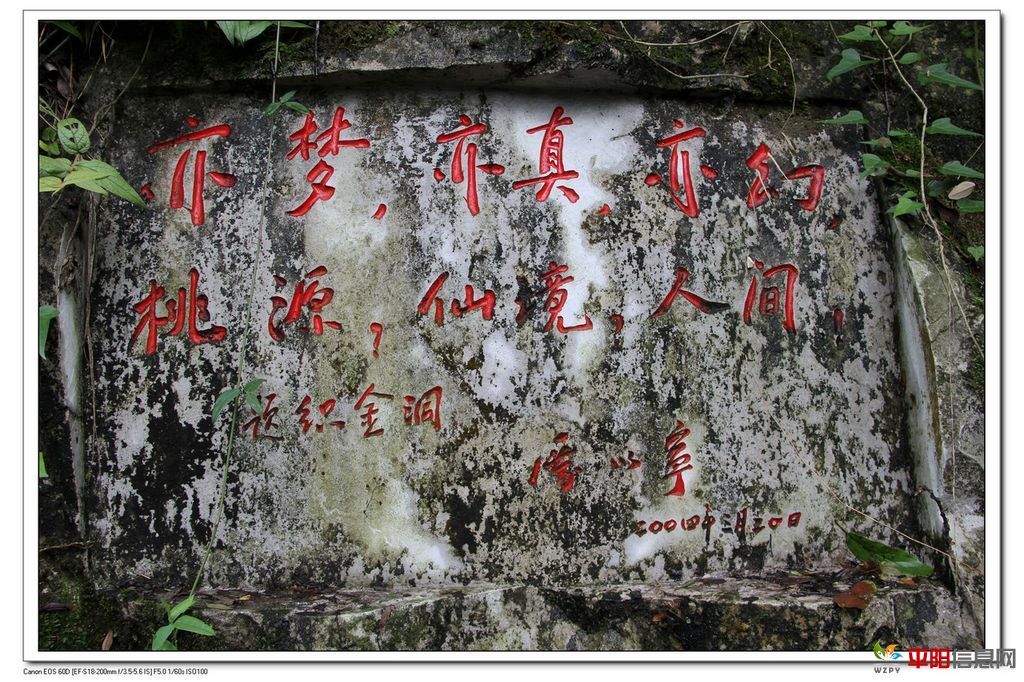 亦梦，亦真，亦幻，
桃源，仙境，人间！
题织金洞
虞以宁
2004年三月二十日
Canon EOS 60D [EF-S18-200mm f/3.5-5.6 IS] F5.0 1/60s ISO100
平阳信息网
WZPY